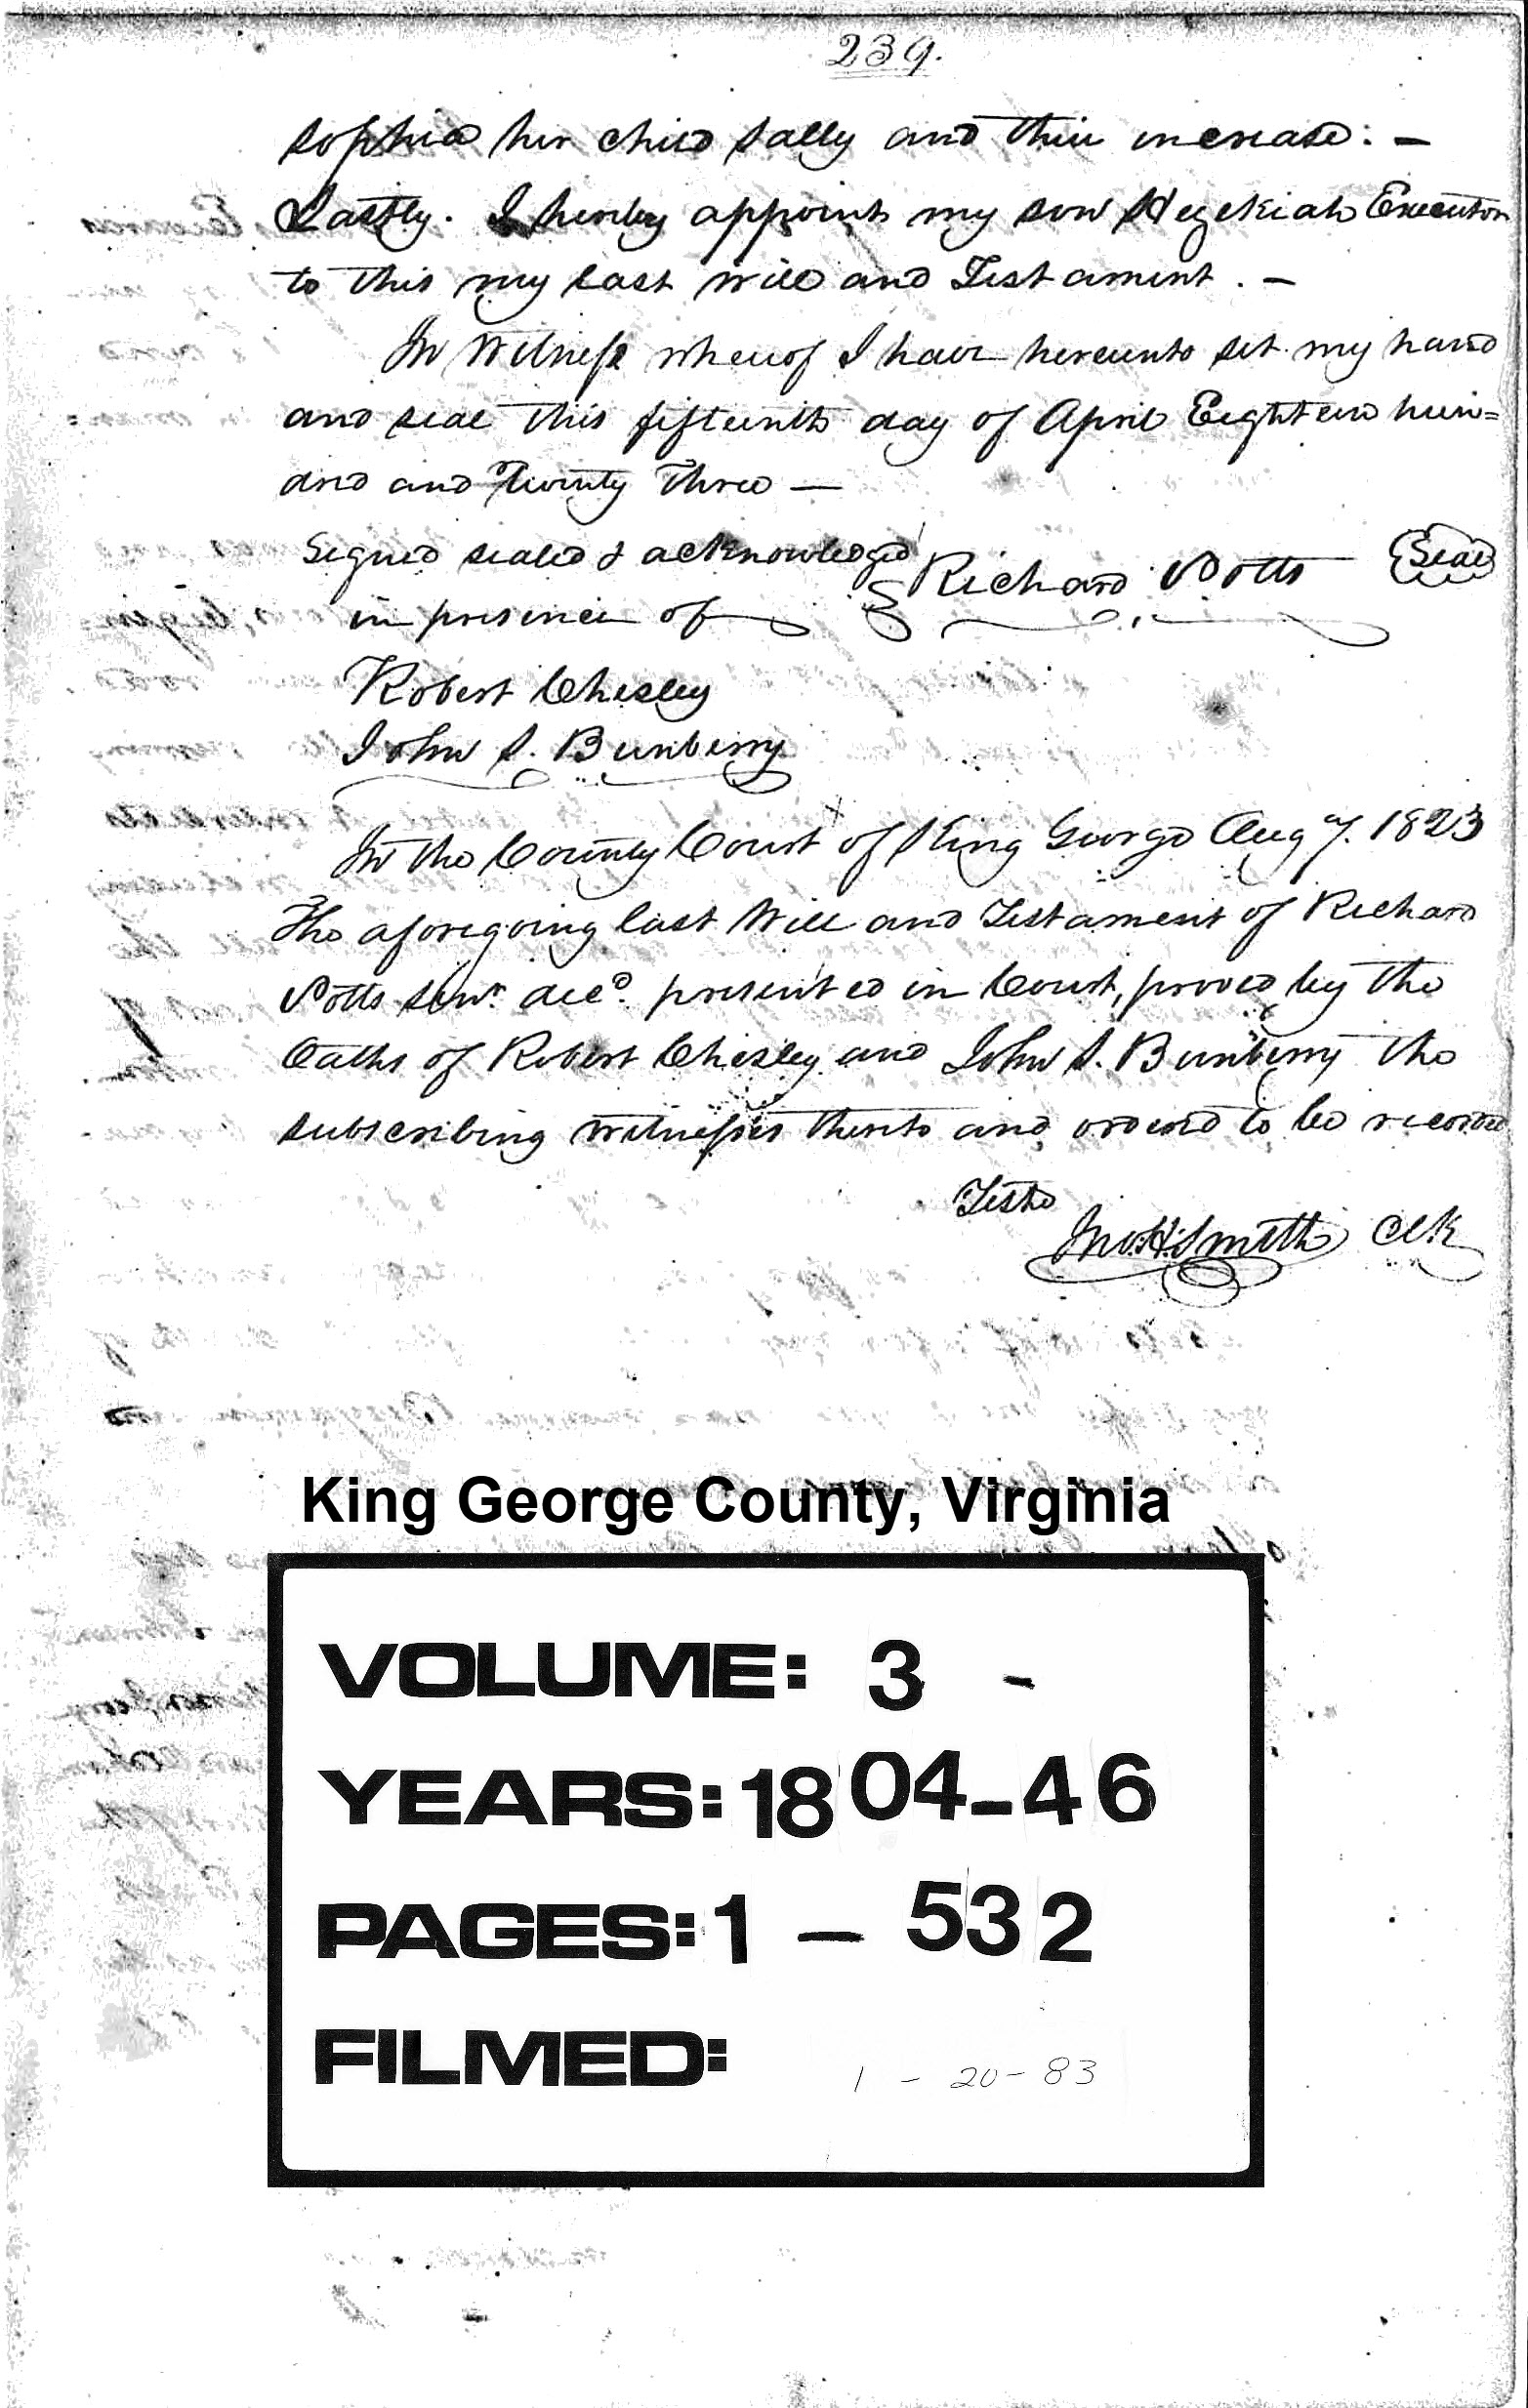 239.
Sophia her child Sally and their increase: —
Lastly. I hereby appoint my son Hezekiah Executor
to this my last will and Testament. —
In Witness whereof I have hereunto set my hand
and seal this fifteenth day of April Eighteen hun=
dred and Twenty Three —
Signed sealed & acknowledged
in presence of
Richard Potts Seal
Robert Chesley
John S. Bunberry
In the County Court of King George Aug 7. 1823
The aforegoing last Will and Testament of Richard
Potts Senr. decd. presented in Court, proved by the
Oaths of Robert Chesley and John S. Bunberry the
subscribing witnesses thereto and ordered to be recorded
Teste
Jno. H. Smith Clk
King George County, Virginia
VOLUME: 3 -
YEARS: 1804-46
PAGES: 1 — 532
FILMED: 1 - 20 - 83